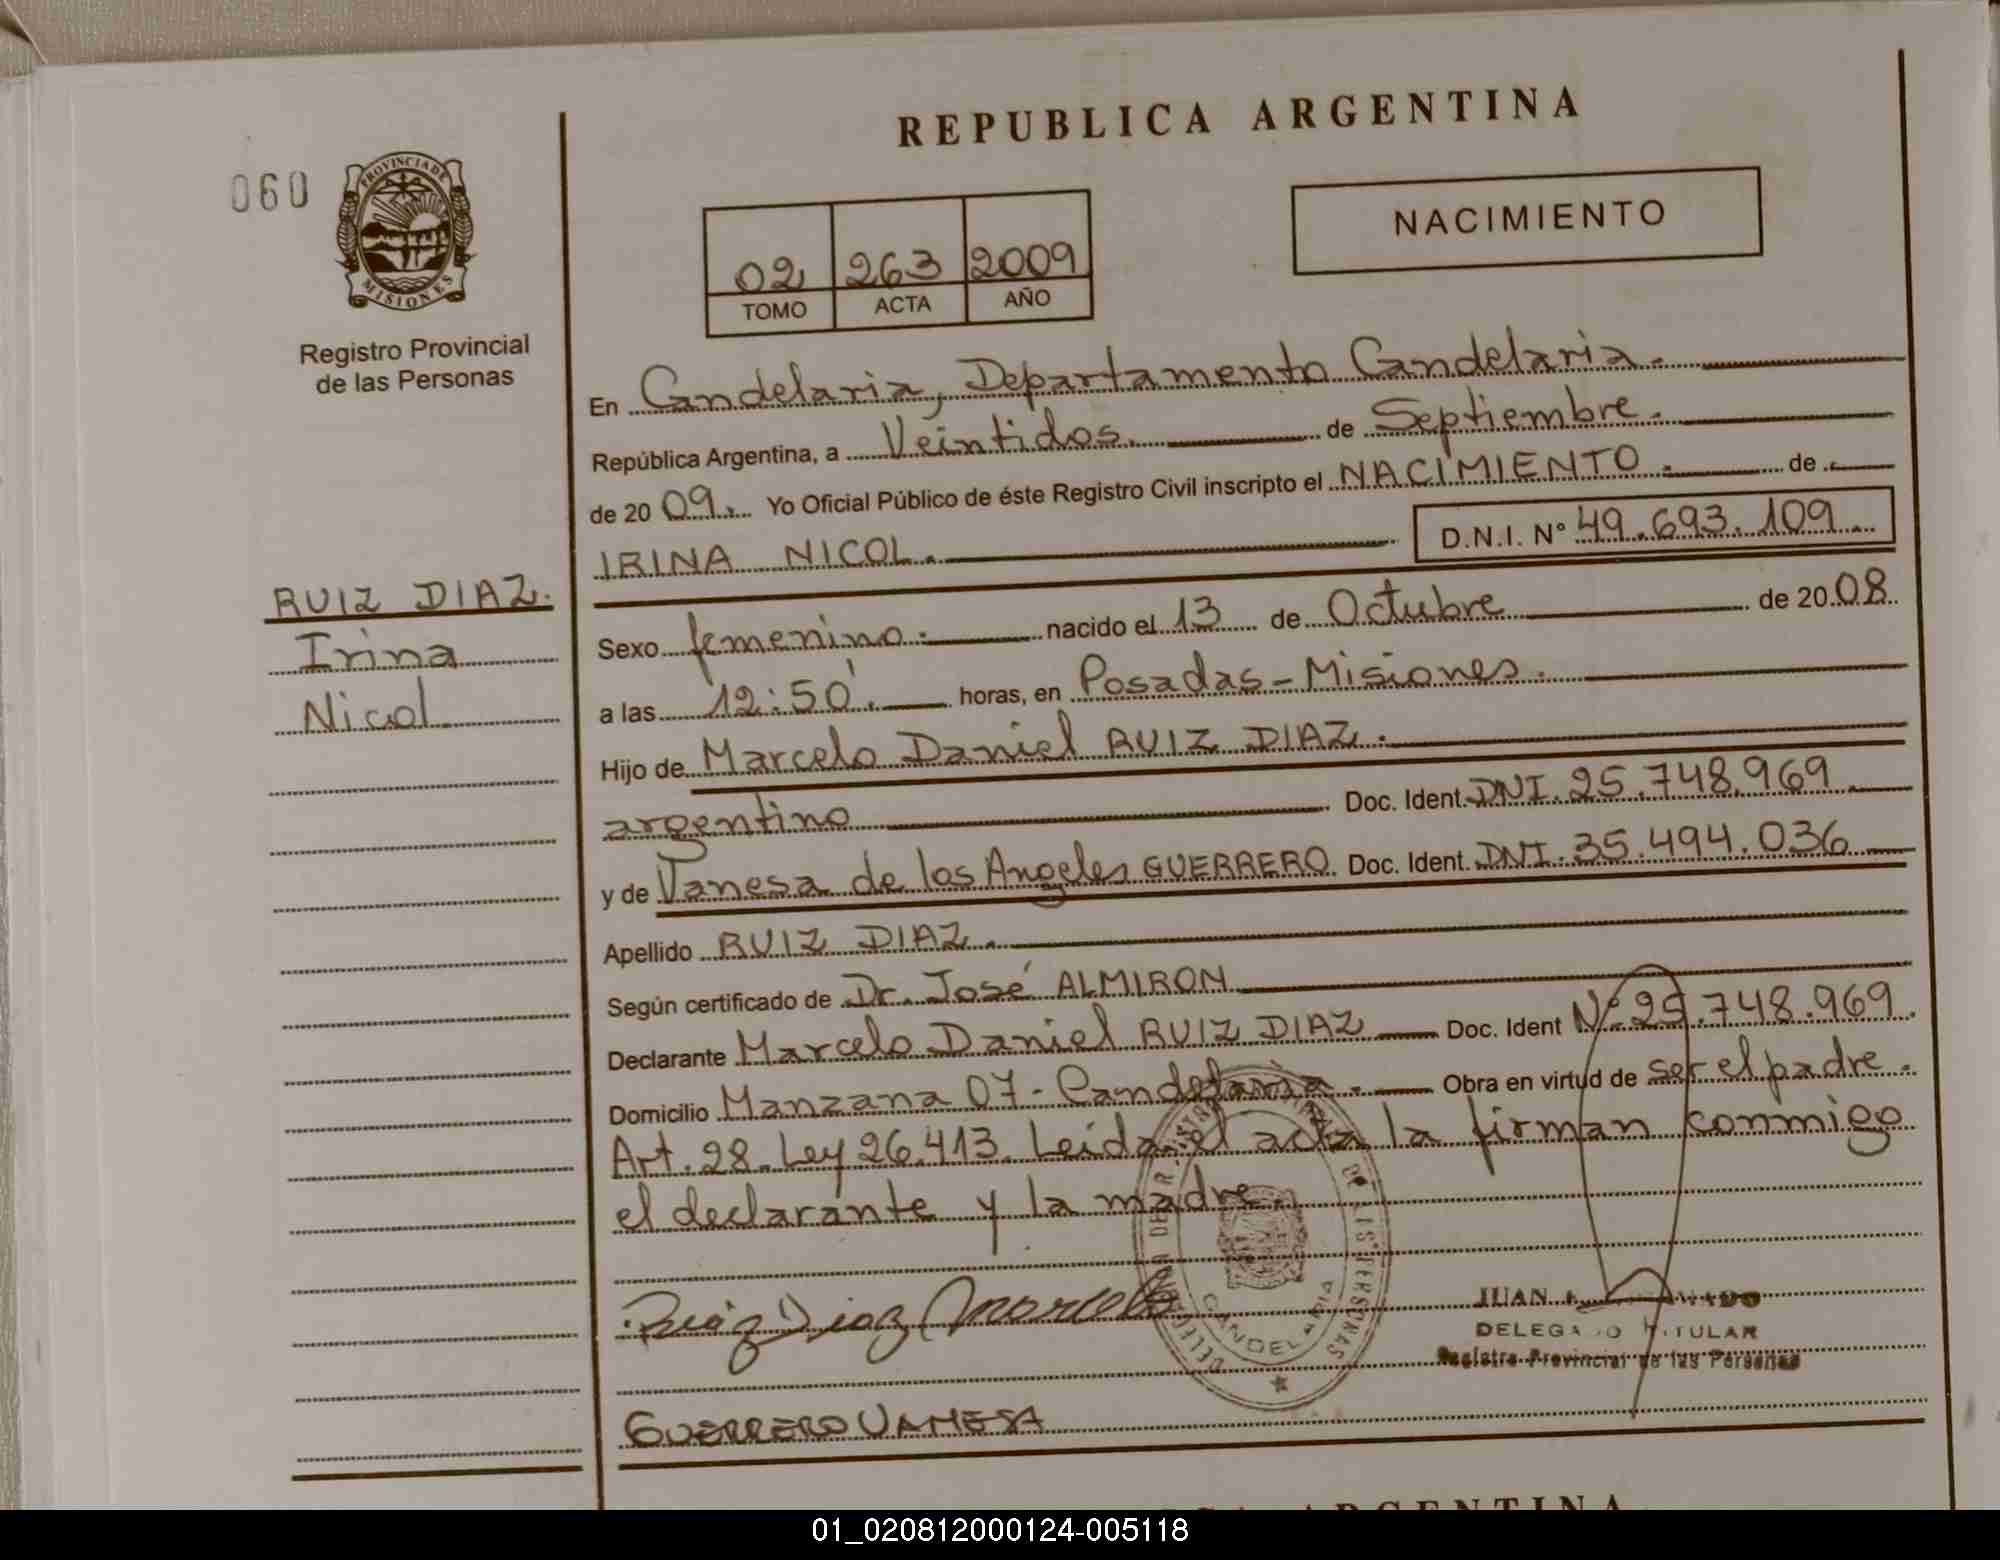 REPUBLICA ARGENTINA
060
PROVINCIA DE
MISIONES
Registro Provincial
de las Personas
02 263 2009
TOMO ACTA AÑO
NACIMIENTO
En Candelaria, Departamento Candelaria.
República Argentina, a Veintidos. de Septiembre.
de 2009. Yo Oficial Público de éste Registro Civil inscripto el NACIMIENTO. de
IRINA NICOL. D.N.I. N° 49.693.109
RUIZ DIAZ.
Irina
Nicol
Sexo femenino. nacido el 13 de Octubre de 2008
a las 12:50'. horas, en Posadas-Misiones.
Hijo de Marcelo Daniel RUIZ DIAZ.
argentino Doc. Ident. DNI. 25.748.969
y de Vanesa de los Angeles GUERRERO Doc. Ident. DNI. 35.494.036
Apellido RUIZ DIAZ.
Según certificado de Dr. José ALMIRON
Declarante Marcelo Daniel RUIZ DIAZ Doc. Ident N° 25.748.969.
Domicilio Manzana 07-Candelaria. Obra en virtud de ser el padre.
Art. 28. Ley 26.413. Leída el acta la firman conmigo
el declarante y la madre.
Ruiz Diaz Marcelo
CANDELARIA
JUAN
DELEGADO TITULAR
Registro Provincial de las Personas
GUERRERO VANESA
ARGENTINA
01_020812000124-005118